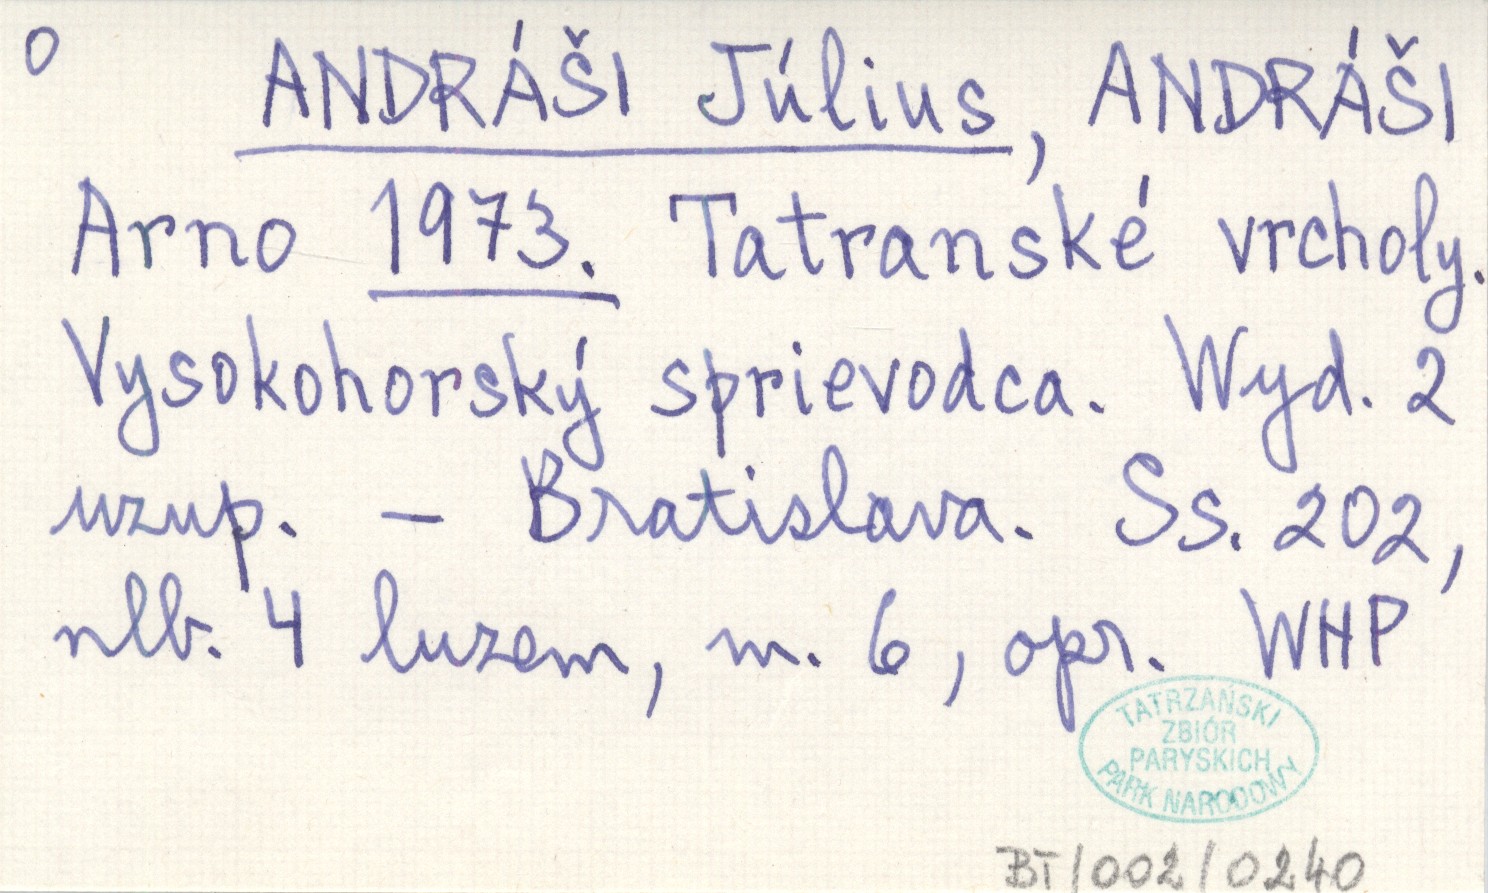 O
ANDRÁŠI Július, ANDRÁŠI
Arno 1973. Tatranské vrcholy.
Vysokohorský sprievodca. Wyd. 2
uzup. – Bratislava. Ss. 202,
nlb. 4 luzem, m. 6, opr. WHP
TATRZAŃSKI
ZBIÓR
PARYSKICH
PARK NARODOWY
BT/002/0240